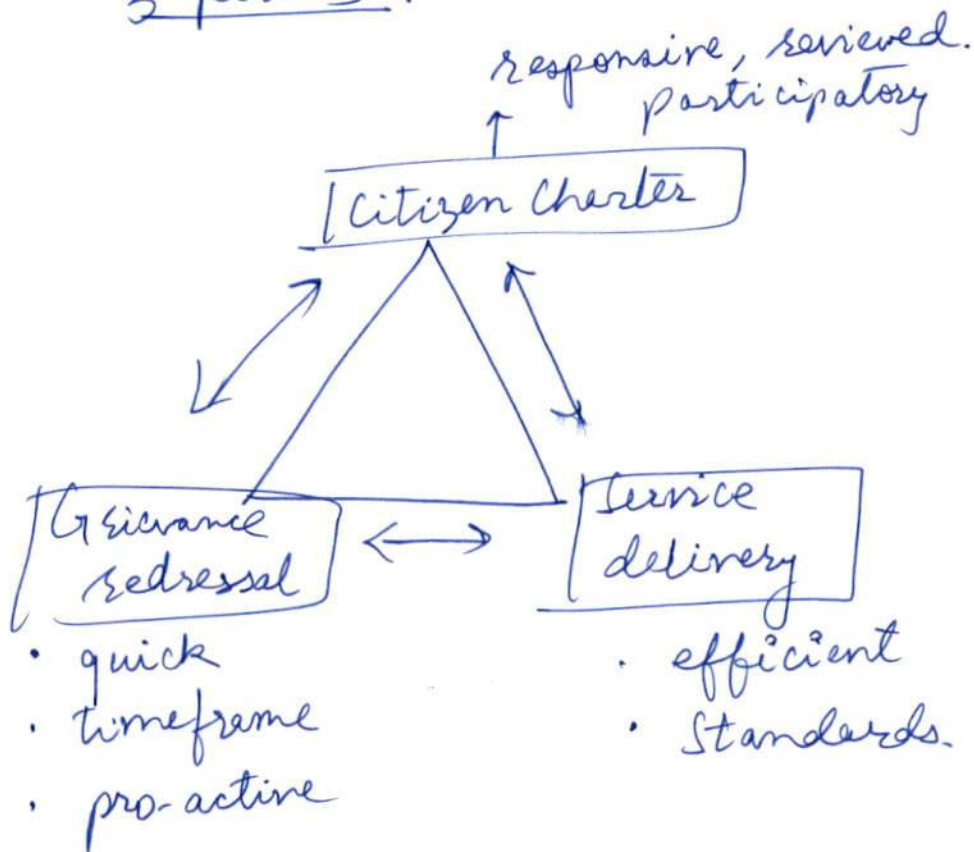 responsive, reviewed.
participatory
Citizen Charter
Greivance
redressal
Service
delivery
• quick
• timeframe
• pro-active
• efficient
• Standards.